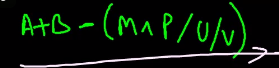 A+B-(M∧P/U/V)